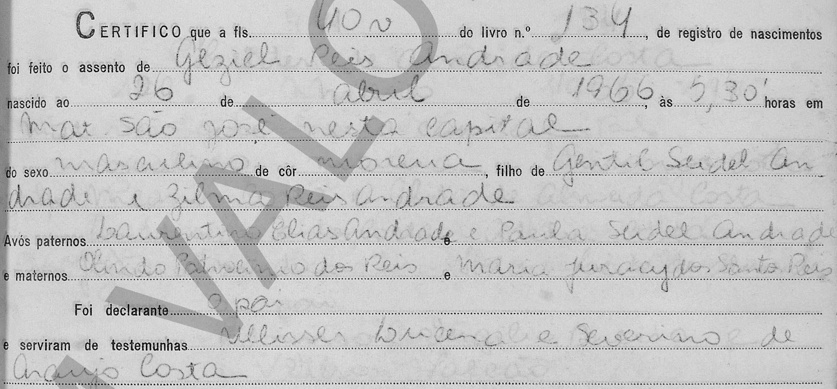 CERTIFICO que a fls. 40v do livro n.º 134, de registro de nascimentos
foi feito o assento de Géziel Reis Andrade
nascido ao 26 de abril de 1966, às 5,30' horas em
Mat São José nesta capital
do sexo masculino de côr morena, filho de Gentil Seidel An-
drade e Zilma Reis Andrade
Avós paternos Laurentino Elias Andrade e Paula Seidel Andrade
e maternos Olindo Patrocinio dos Reis e Maria Juracy dos Santos Reis
Foi declarante o pai
e serviram de testemunhas Ulisses Lucena e Severino de
Araujo Costa
VALO